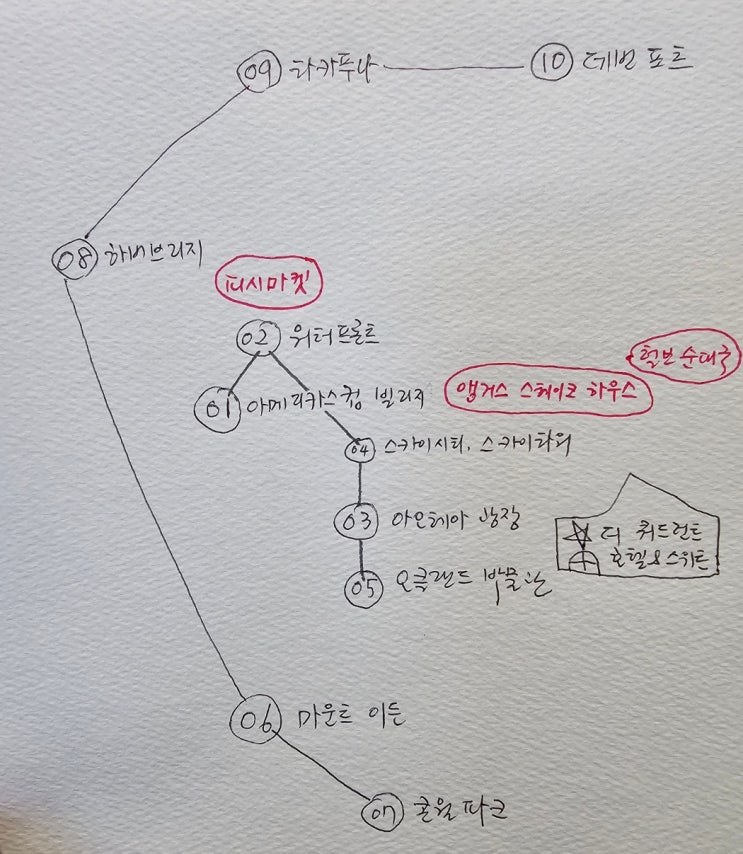 09 타카푸나
10 데번 포트
08 하버브리지
피시마켓
02 워터프론트
헐번 순대국
01 아메리카스컵 빌리지
앵거스 스테이크 하우스
04 스카이시티, 스카이타워
03 아오테아 광장
더 쿼드런트
호텔&스위트
05 오클랜드 박물관
06 마운트 이든
07 콘월파크